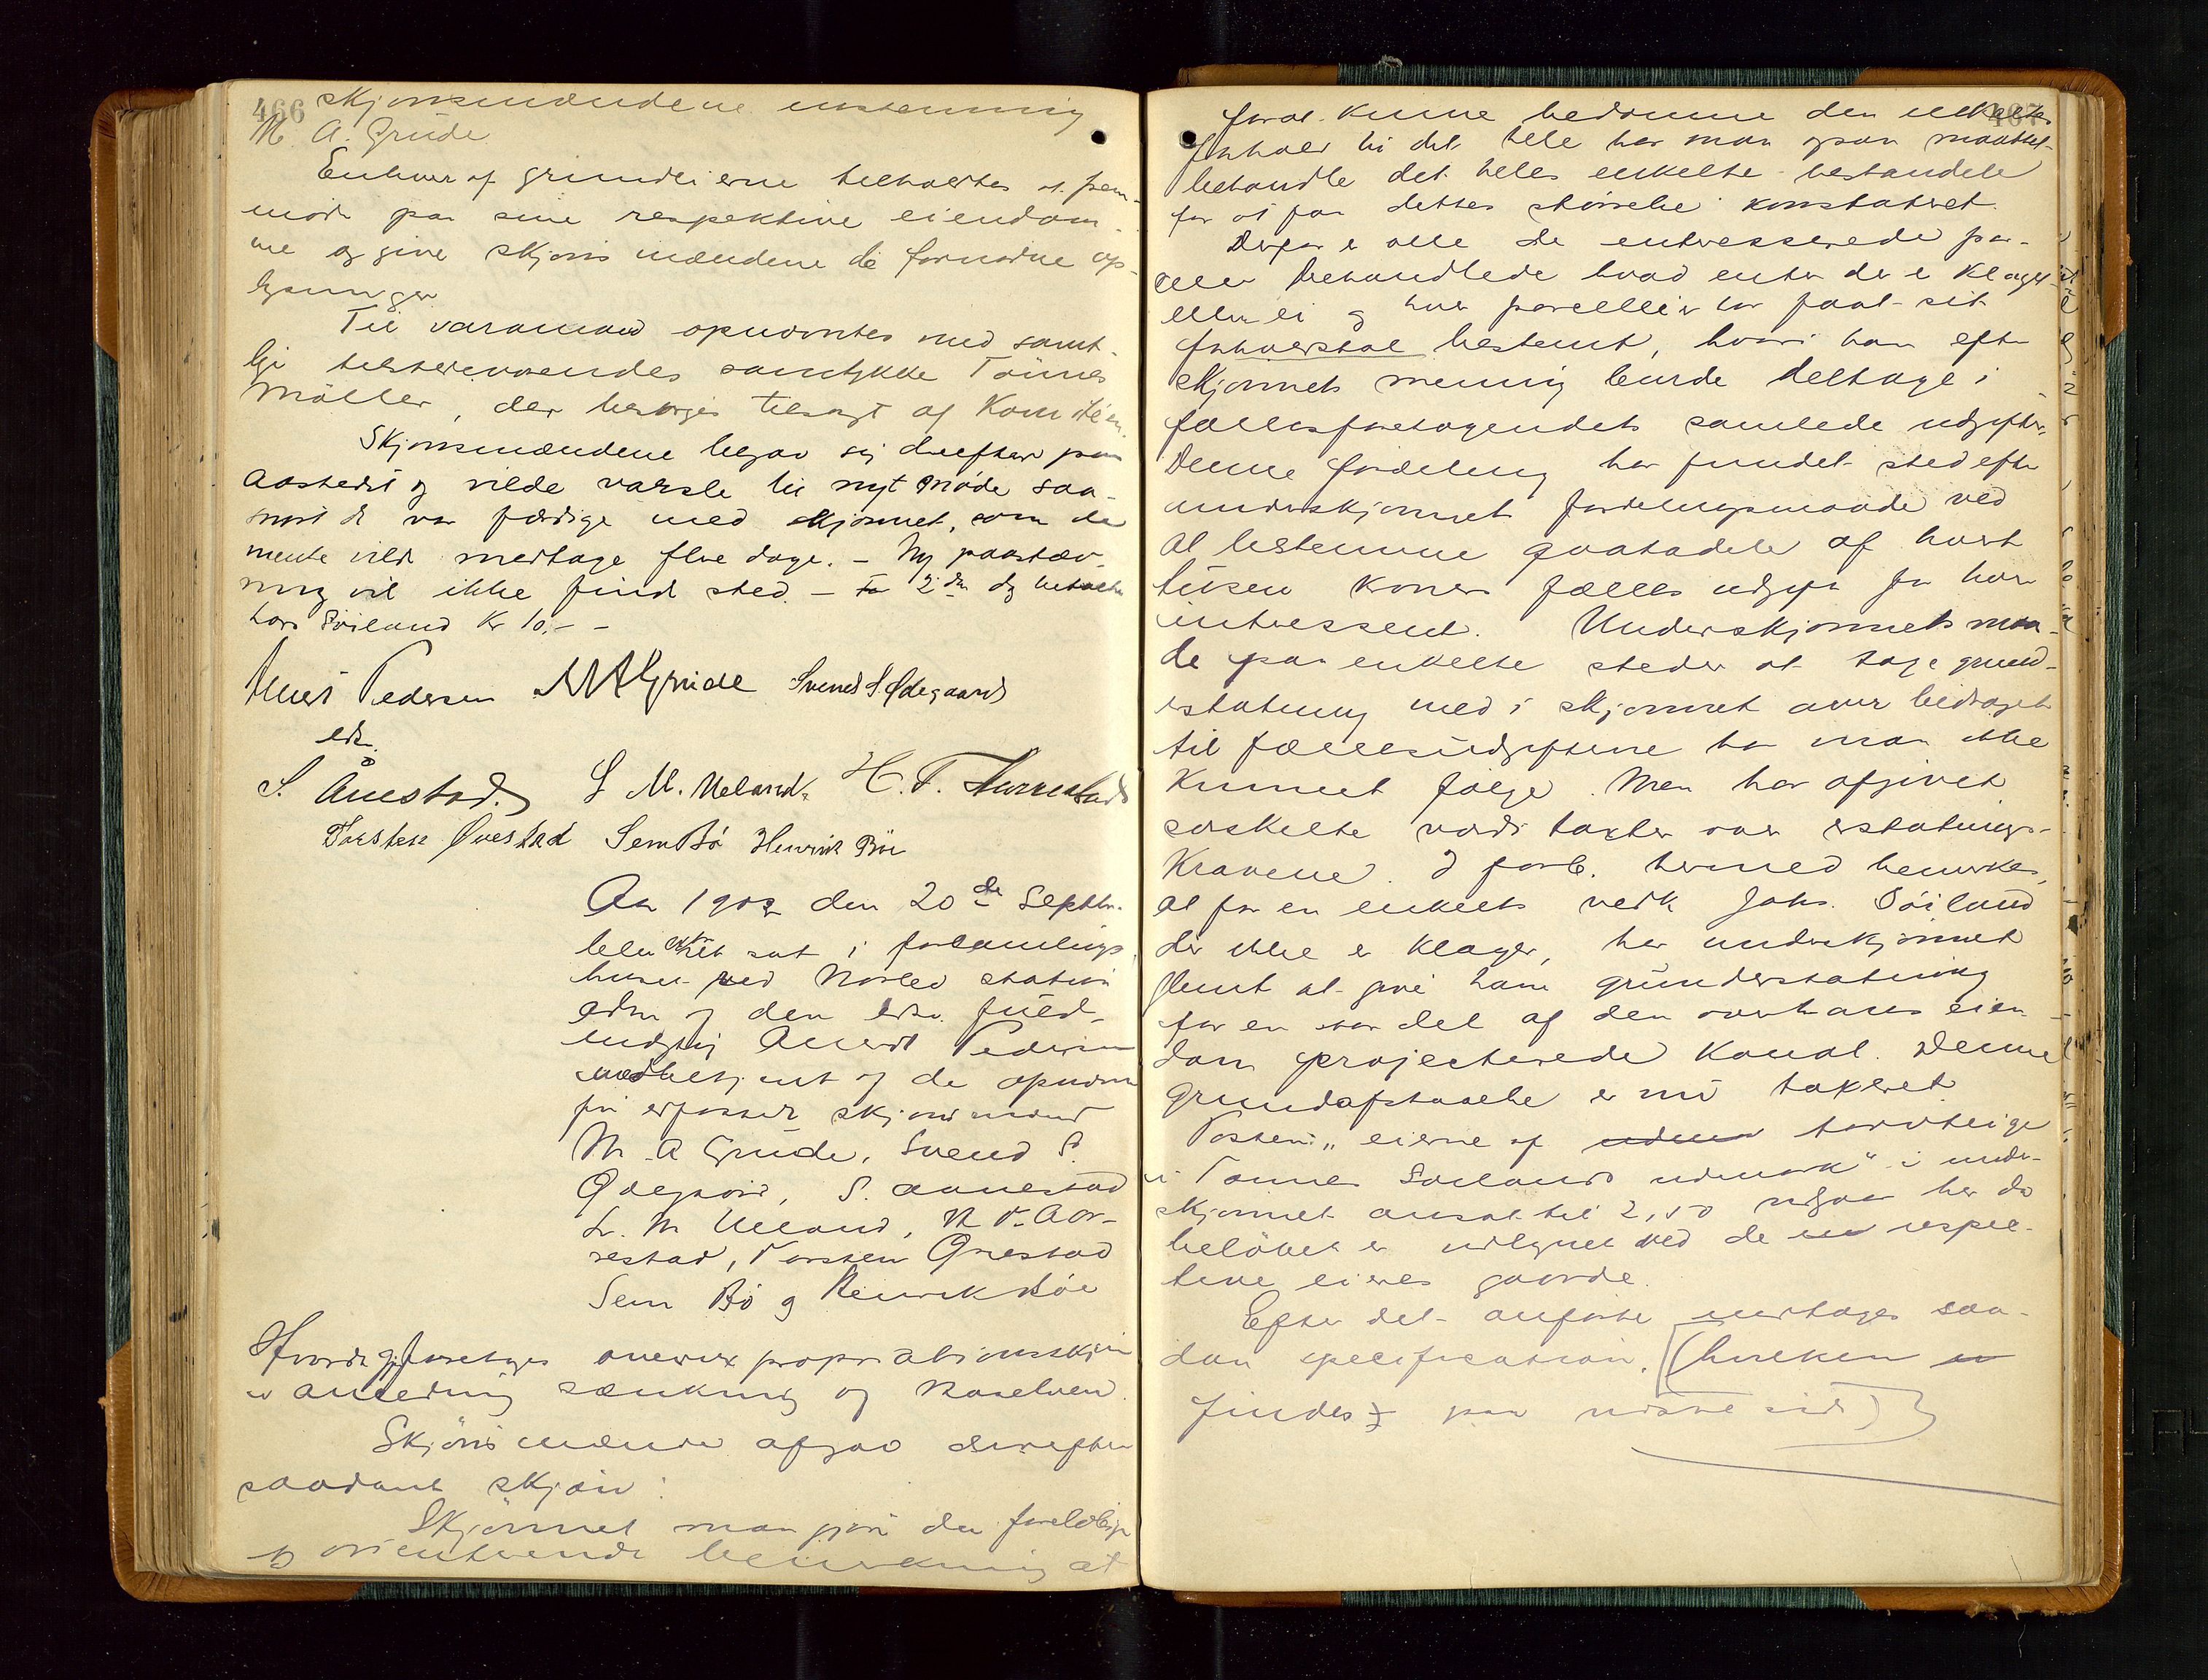 466 skjønsmændene enstemmig
M. A. Grude
Enhver af grundeierne tilholdtes at frem-
møde paa sine respektive eiendom-
me og give skjønsmændene de fornødne op-
lysninger
Til varamand opnævntes med samt-
lige tilstedeværendes samtykke Tønnes
Möller, der besørges tilsagt af Komitéen.
Skjønsmændene begav sig derefter paa
Aastedet og vilde varsle til nyt møde saa-
snart de var færdige med skjønnet, som de
mente vilde medtage flere dage. – Ny paastæv-
ning vil ikke finde sted. – For 2 den dg betaltes
Lars Söiland Kr 10,- -
Anert Pedersen M A Grude Svend S. Ødegaard
edsv.
S. Ånestad. L M. Ueland. H. T. Aarrestad
Torsten Qvestad Sem Bö Henrik Böe
Aar 1902 den 20de Septbr.
blev retten sat i forsamlings
huset ved Nærbø station
adm og den edsv. fuld-
mægtig Anert Pedersen
med betjent og de opnævnte
skjønsmænd
M. A Grude, Svend S.
Ødegaard, S. Aanestad
L. M Ueland, H. T. Aar-
restad, Torsten Qvestad
Sem Bö og Henrik Böe
Hvorda foretoges overexpropriationsskjøn
i anledning sænkning og Haaelven.
Skjönsmændene afgav derefter
saadant skjøn:
Skjønnet maa gjøre den foreløbige
og orienterende bemerkning at
467
for at kunne bedømme den enkeltes
forhold til det hele har man ogsaa maattet
behandle det heles enkelte bestandele
for at faa dettes størrelse konstateret.
Derfor er alle de interesserede par-
celler behandlede hvad enten der er klaget
eller ei og hver parcelleier har faaet sit
forholdstal bestemt, hvori han efter
skjønnets mening burde deltage i
fællesforetagendets samlede udgifter,
Denne fordeling har fundet sted efter
underskjønnets fordelingsmaade ved
at bestemme quotadele af hvert
tusen kroners fælles udgift for hver
interessent. Underskjønnets maa-
de paa enkelte steder at tage grund-
erstatning med i skjønnet over bidraget
til fællesudgifterne har man ikke
kunnet følge. Men har afgivet
særskilte værditakster over erstatnings-
kravene. I forb. hermed bemerkes,
at for en enkelts vedk Johs. Söiland
der ikke er klager, har underskjønnet
glemt at give ham grunderstatning
for en stor del af den over hans eien-
dom projecterede Kanal. Denne
grundafstaaelse er nu takseret.
Posten: „eierne af torvteige
i Tønnes Sørlands udmark“ i under-
skjønnet ansat til 2,50 udgaar her da
beløbet er udlignet ved de respec-
tive eieres gaarde.
Efter det anførte medtages saa-
dan specification. (hvilken
findes paa næste side)